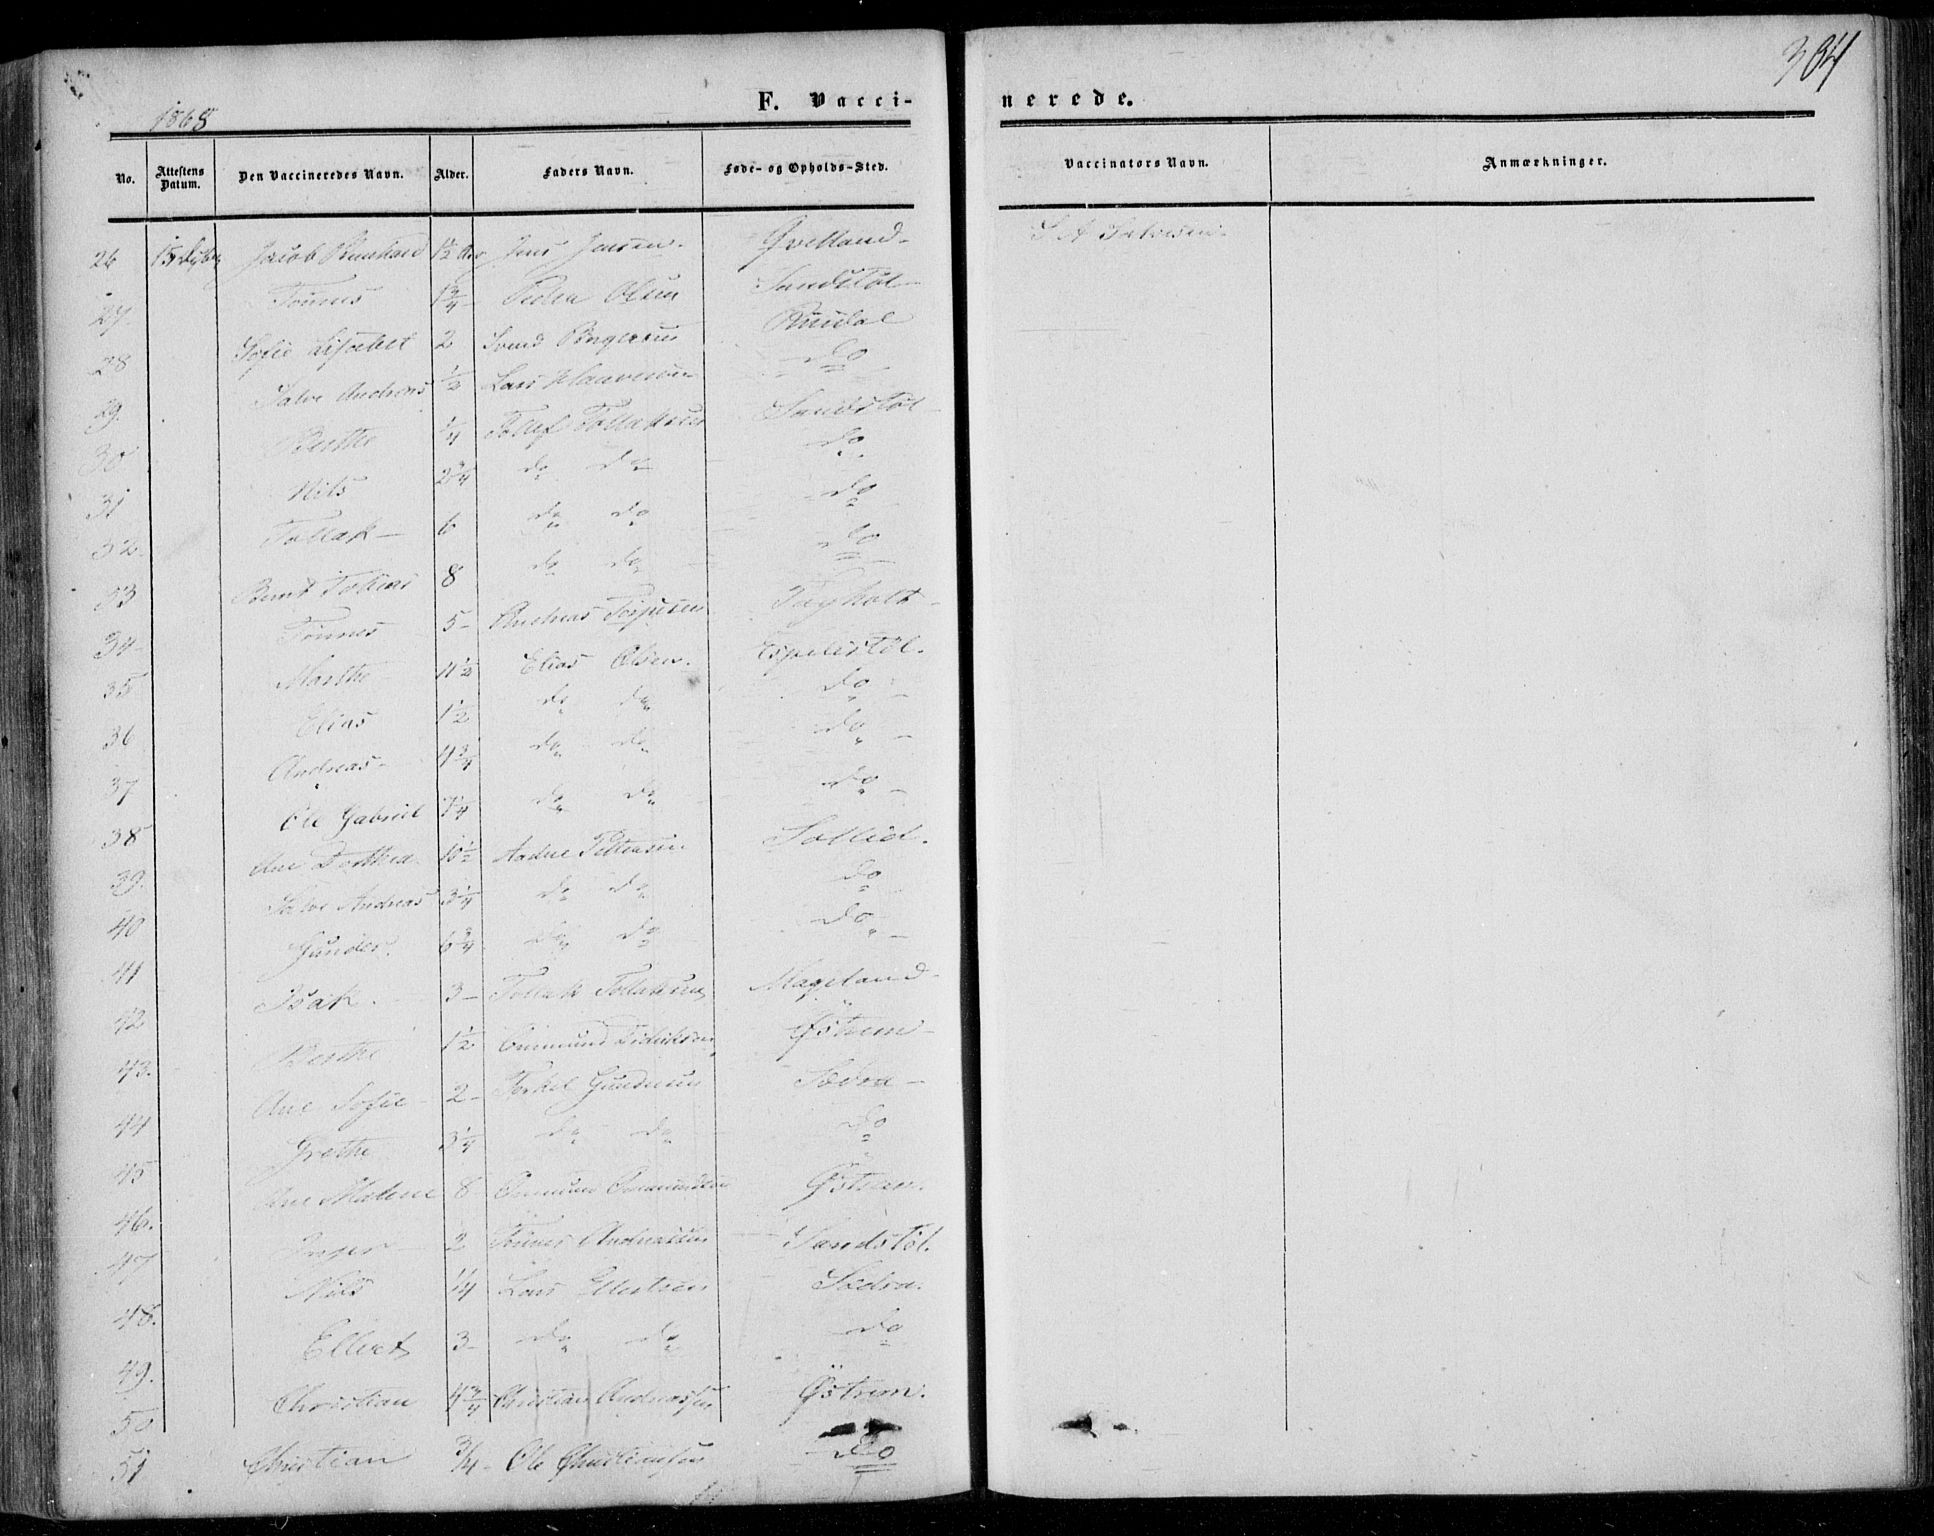 304
1868
F. Vacci-
nerede.
No. Attestens Datum. Den Vaccineredes Navn. Alder. Faders Navn. Føde- og Opholds-Sted. Vaccinators Navn. Anmærkninger.
26 15 Jacob 1½ Jens Jensen. Qvelland - S A Salvesen.
27. Tønnes 1¾ - Peder Olsen Sandstøl -
28 Sofie Lisabet 2 Svend
29. Salve Andreas ½ Lars do
30 Berthe ¼ Tollef Tollaksen Sandstøl -
31 Nils 2¾ do do do
32. Tollak - 6 do do do
33 Bernt Tobias 8 do do do
34 Tønnes 5 - Andreas Terjesen
35 Marthe 11½ Elias Olsen. Espelistøl.
36 Elias 1½ do do do -
37 Andreas - 4¾ do do do -
38 Ole Gabriel 7¼ do do do -
39. Ane Dorthea 10½ Aadne Pettersen Sollid.
40 Salve Andreas 3¼ do do do -
41 Gunder. 6¾ do do do -
42 Isak. 3 - Tollak Tollaksen Mageland -
43. Berthe 1½ Ommund Didriksen Østrem -
44 Ane Sofie - 2 - Torkel Gundersen Sædra -
45 Grethe 3¼ do do do
46. Ane Malene 8 Ommund Ommundsen Østrem.
47 Inger 2 Tønnes Andreassen Sandstøl.
48. Nils ¼ Lars Ellertsen Sædra.
49. Ellert 3 - do do do
50 Christian 4¾ Christian Andreassen Østrem.
51 Christian ¾ - Ole Christiansen do